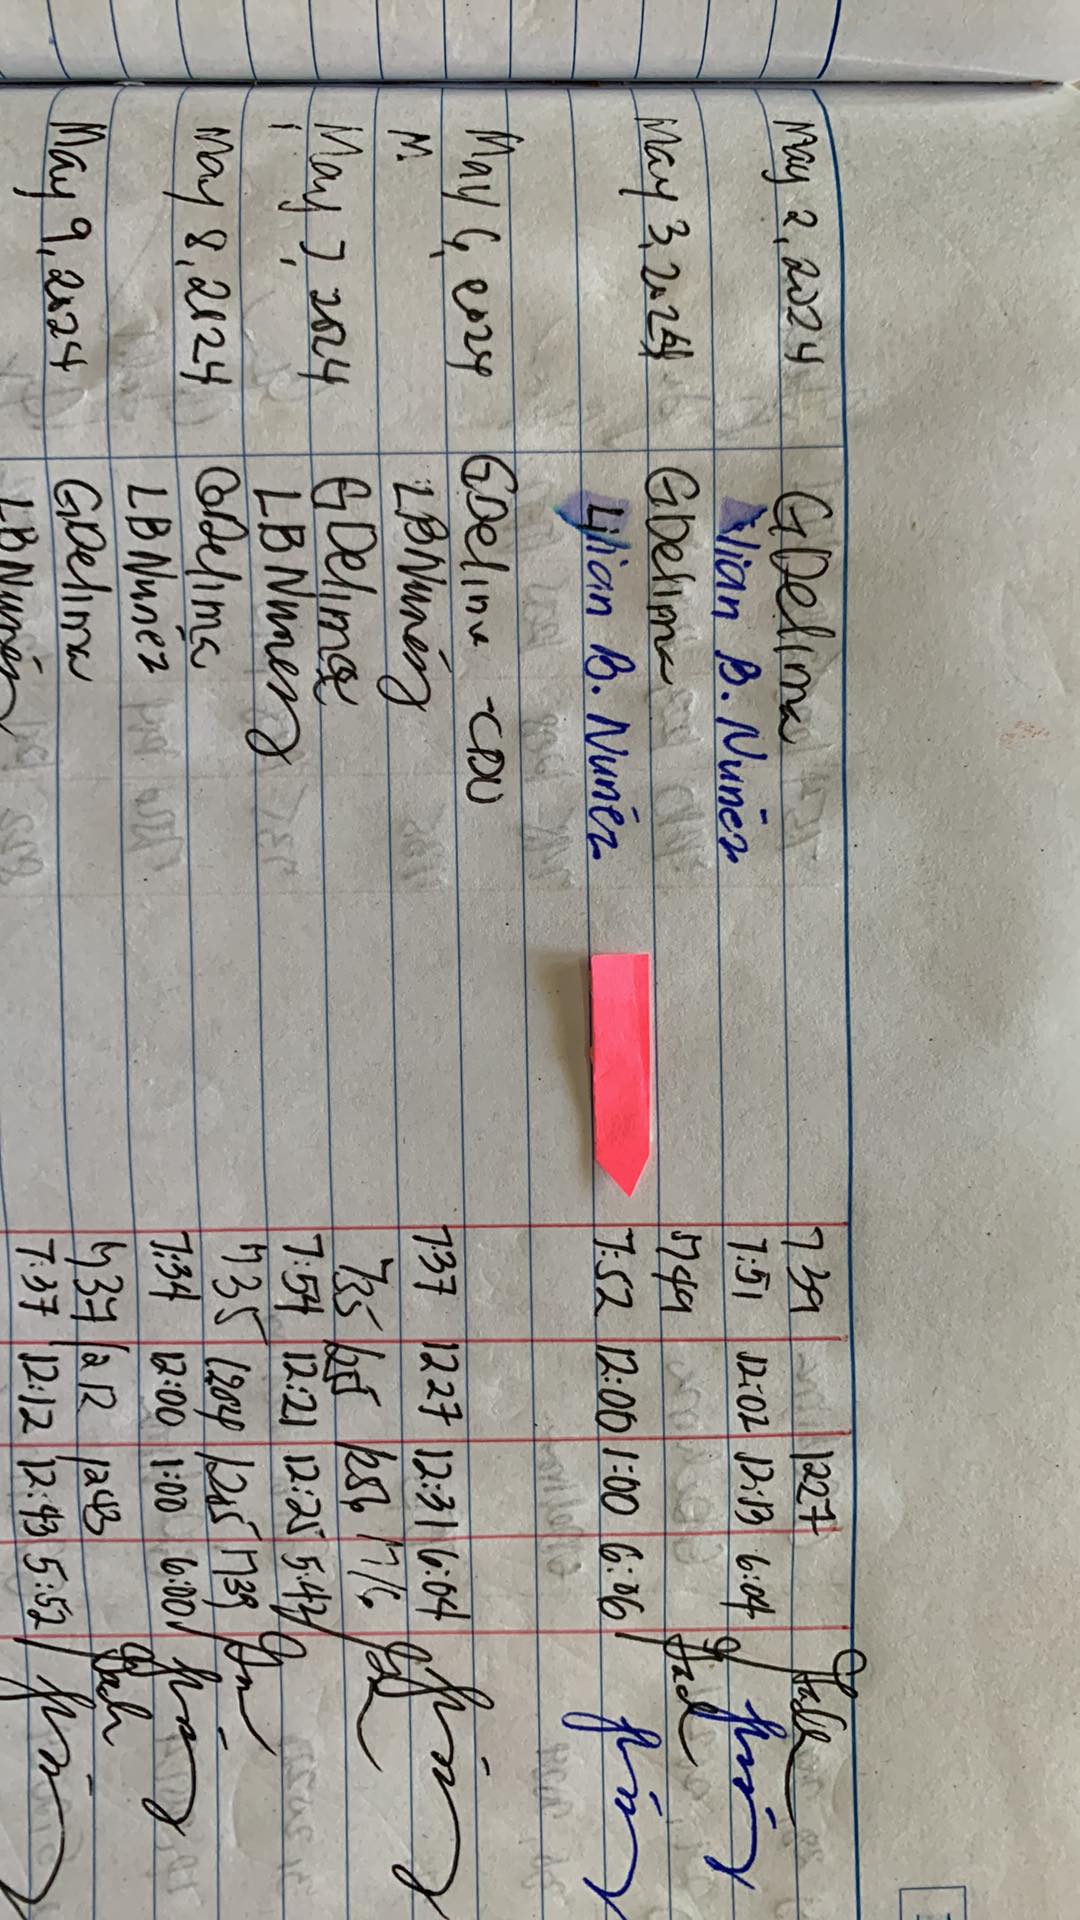 May 2, 2024 GDelima 739 1227
lian B. Nuñez 7:51 12:02 12:13 6:04
May 3, 2024 GDelima 749
Lilian B. Nuñez 7:52 12:00 1:00 6:06
May 6, 2024 GDelima - CDU
M. LBNuñez 7:37 1227 12:31 6:04
May 7, 2024 GDelima 735 1256
LBNuñez 7:54 12:21 12:25 5:42
May 8, 2024 GDelima 735 1204 1205 739
LBNuñez 7:34 12:00 1:00 6:00
May 9, 2024 GDelima 737 1212 1243
LBNuñez 7:37 12:12 12:43 5:52